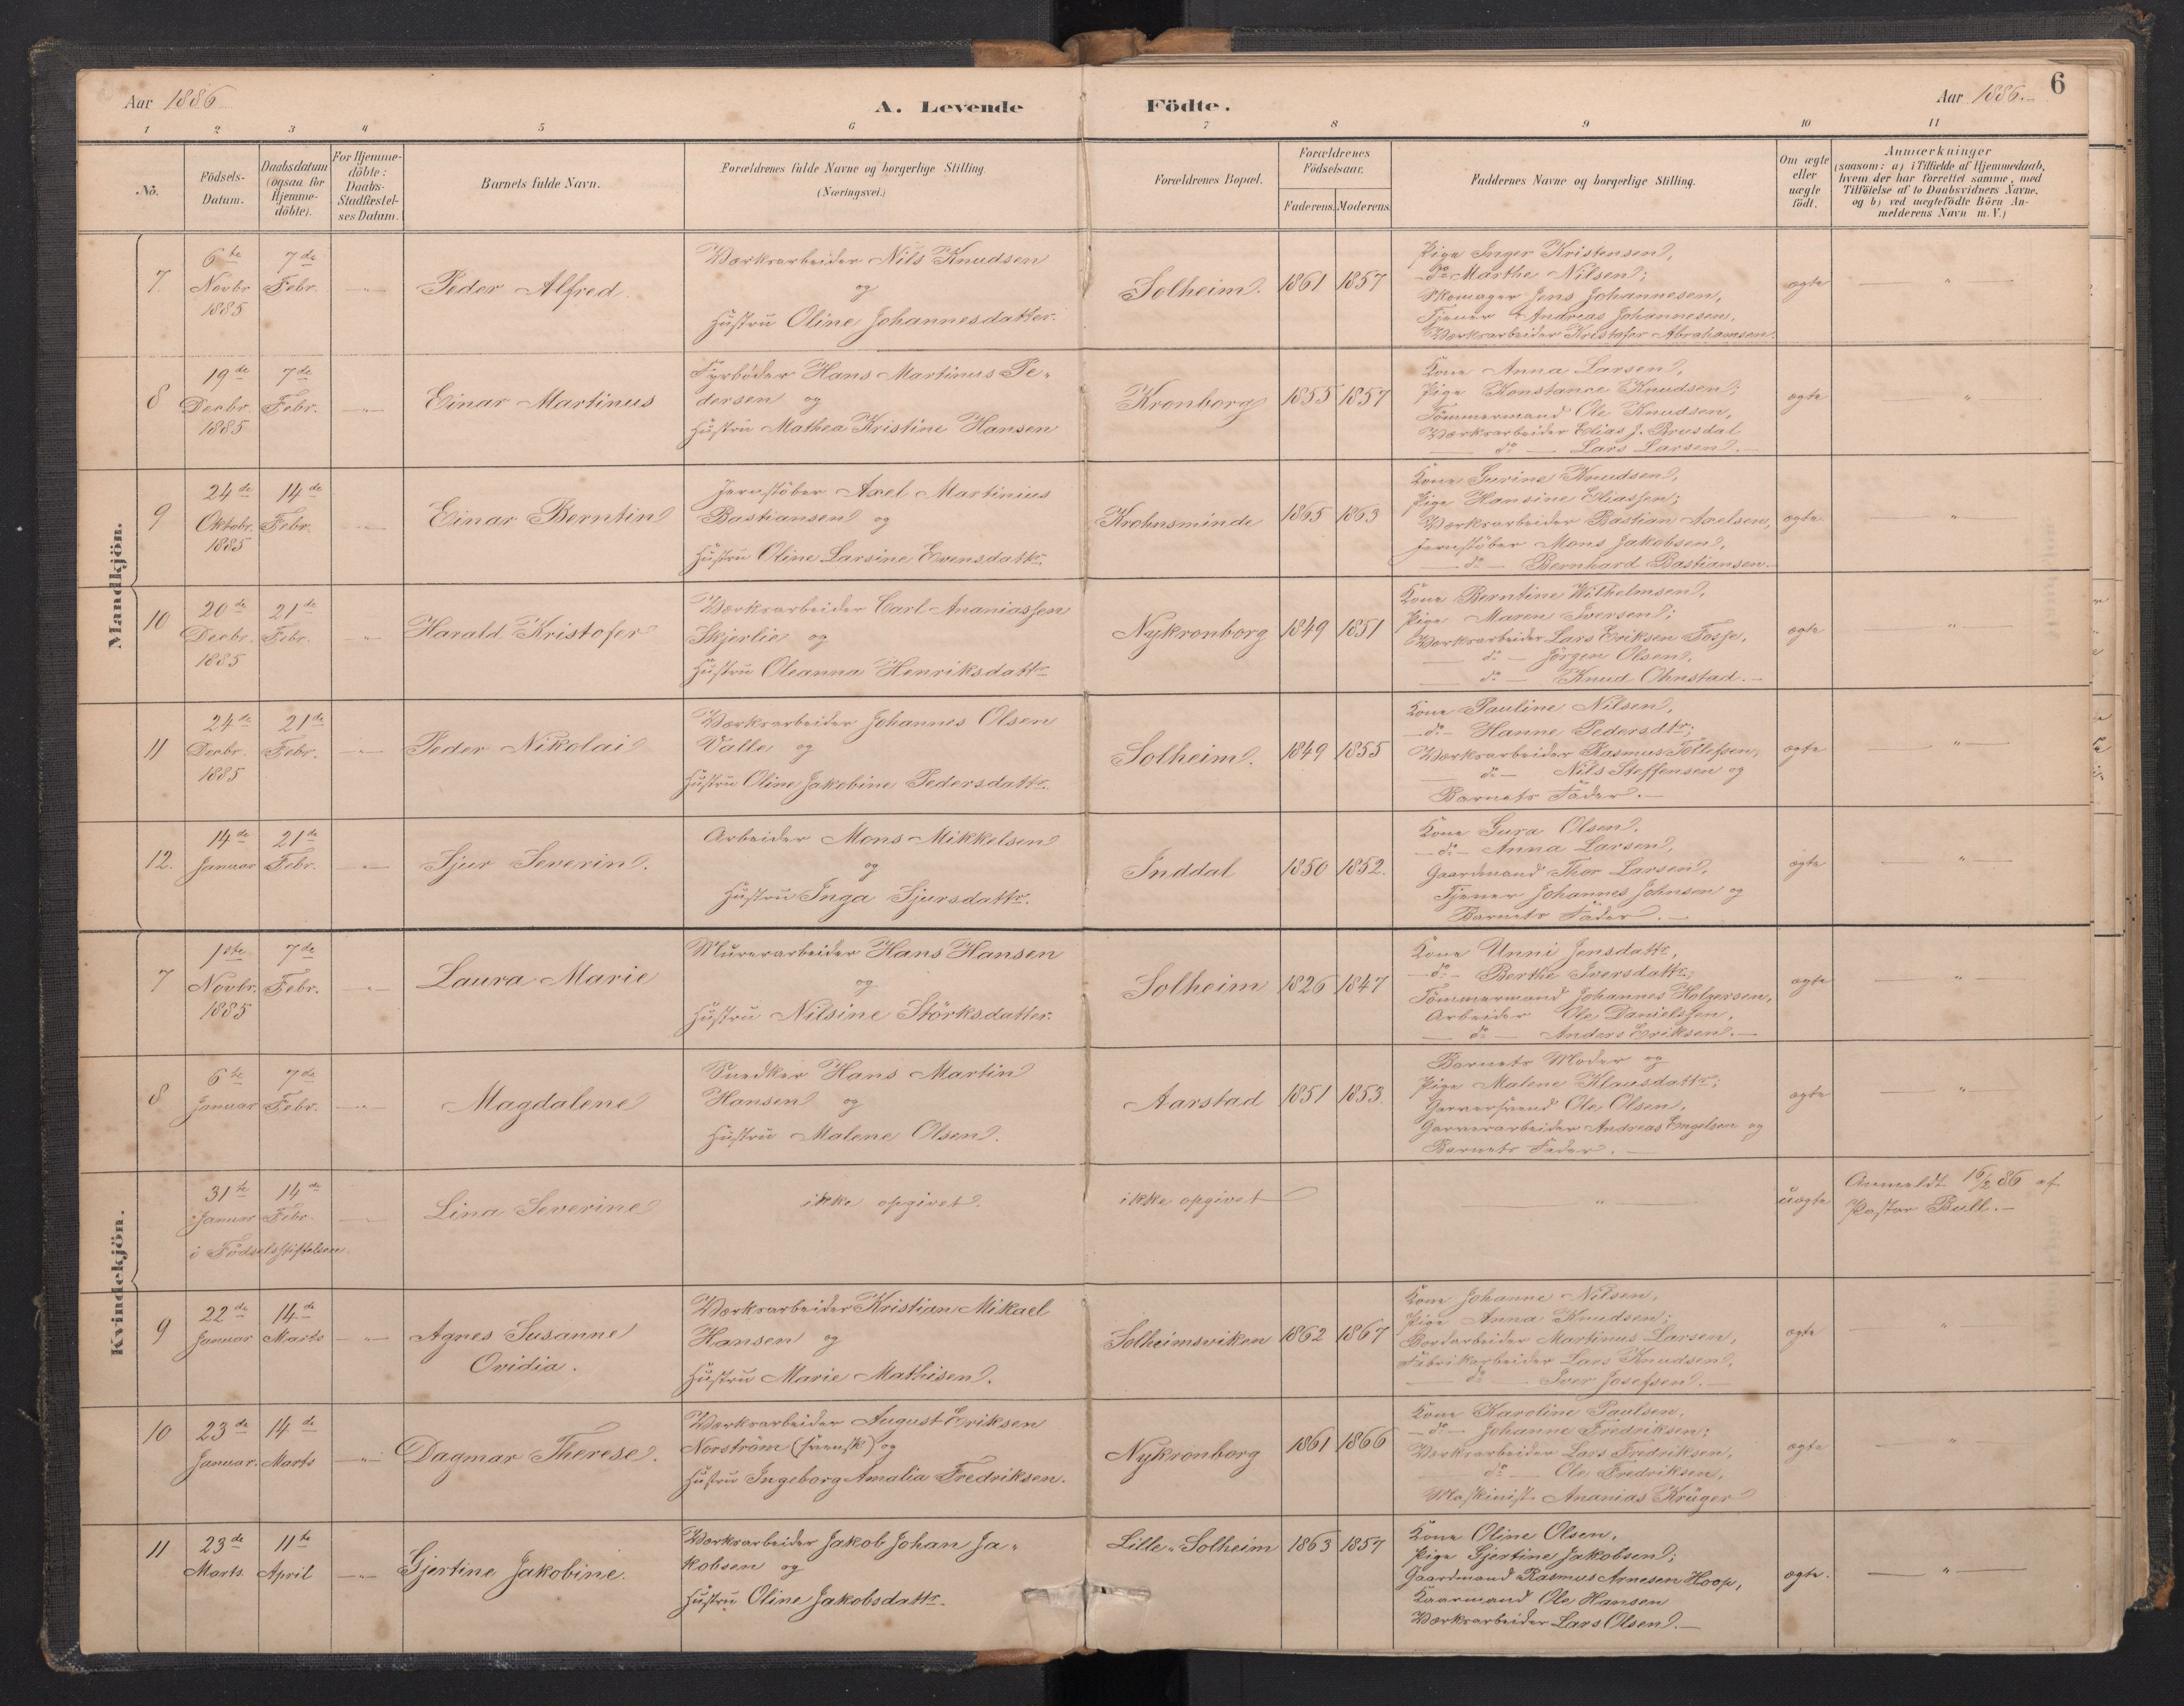 Aar 1886
A. Levende Födte.
Aar 1886.
6
1 2 3 4 5 6 7 8 9 10 11
No.
Födsels-Datum.
Daabsdatum (ogsaa for Hjemme-döbte).
For Hjemme-döbte: Daabs-Stadfæstel-ses Datum.
Barnets fulde Navn.
Forældrenes fulde Navne og borgerlige Stilling.
(Næringsvei.)
Forældrenes Bopæl.
Forældrenes Födselsaar.
Faderens. Moderens.
Faddernes Navne og borgerlige Stilling.
Om ægte eller uægte födt.
Anmærkninger
(saasom: a) i Tilfælde af Hjemmedaab,
hvem der har forrettet samme, med
Tilföielse af to Daabsvidners Navne.
og b) ved uægtefödte Börn An-
melderens Navn m. V.)
Mandkjön.
7
6te Novbr 1885
7de Febr.
Peder Alfred.
Værksarbeider Nils Knudsen
og
Hustru Oline Johannesdatter.
Solheim.
1861 1857
Pige Inger Kristensen,
do Marthe Nilsen;
Skomager Jens Johannesen,
Tjener Andreas Johannesen,
Værksarbeider Kristofer Abrahamsen.
ægte
8
19de Decbr. 1885
7de Febr.
Einar Martinus
Fyrböder Hans Martinus Pe-
dersen og
Hustru Mathea Kristine Hansen
Kronborg
1855 1857
Kone Anna Larsen,
Pige Konstance Knudsen;
Tömmermand Ole Knudsen,
Værksarbeider Elias J. Brusdal
do Lars Larsen.
ægte
9
24de Oktobr. 1885
14de Febr.
Einar Berntin
Jernstöber Axel Martinius
Bastiansen og
Hustru Oline Larsine Evensdattr.
Krohnsminde
1865 1863
Kone Gurine Knudsen,
Pige Hansine Eliassen;
Værksarbeider Bastian Axelsen,
Jernstöber Mons Jakobsen,
do Bernhard Bastiansen.
ægte
10
20de Decbr. 1885
21de Febr.
Harald Kristofer
Værksarbeider Carl Ananiassen
Skjerlie og
Hustru Oleanna Henriksdattr
Nykronborg
1849 1851
Kone Berntine Wilhelmsen,
Pige Maren Iversen;
Værksarbeider Lars Eriksen Fosse,
do Jörgen Olsen,
do Knud Ohnstad.
ægte
11
24de Decbr. 1885
21de Febr.
Peder Nikolai
Værksarbeider Johannes Olsen
Valle og
Hustru Oline Jakobine Pedersdattr.
Solheim.
1849 1855
Kone Pauline Nilsen,
do Hanne Pedersdtr;
Værksarbeider Rasmus Tollefsen,
do Nils Steffensen og
Barnets Fader.
ægte
12.
14de Januar
21de Febr.
Sjur Severin.
Arbeider Mons Mikkelsen
og
Hustru Inga Sjursdattr.
Inddal
1850 1852.
Kone Gura Olsen,
do Anna Larsen,
Gaardmand Thor Larsen,
Tjener Johannes Johnsen og
Barnets Fader.
ægte
Kvindekjön.
7
1ste Novbr. 1885
7de Febr.
Laura Marie
Murerarbeider Hans Hansen
og
Hustru Nilsine Störksdatter.
Solheim
1826 1847
Kone Unni Jensdattr,
do Berthe Iversdattr;
Tömmermand Johannes Holgersen,
Arbeider Ole Danielssen,
do Anders Eriksen.
ægte
8
6te Januar
7de Febr.
Magdalene
Snedker Hans Martin
Hansen og
Hustru Malene Olsen.
Aarstad
1851 1853.
Barnets Moder og
Pige Malene Klausdattr;
Garversvend Ole Olsen,
Garverarbeider Andreas Engelsen og
Barnets Fader.
ægte
31te Januar
14de Febr.
i Födselsstiftelsen.
Lina Severine
ikke opgivet.
ikke opgivet
uægte
Anmeldt 16/2 86 af
Pastor Bull.
9
22de Januar
14de Marts
Agnes Susanne
Ovidia.
Værksarbeider Kristian Mikael
Hansen og
Hustru Marie Mathisen.
Solheimsviken
1862 1867
Kone Johanne Nilsen,
Pige Anna Knudsen;
Bordarbeider Martinus Larsen,
Fabrikarbeider Lars Knudsen,
do Iver Josefsen.
ægte
10
23de Januar.
14de Marts
Dagmar Therese.
Værksarbeider August Eriksen
Norström (svensk) og
Hustru Ingeborg Amalia Fredriksen.
Nykronborg
1861 1866
Kone Karoline Paulsen,
do Johanne Fredriksen;
Værksarbeider Lars Fredriksen,
do Ole Fredriksen,
Maskinist Ananias Krüger
ægte
11
23de Marts.
11te April
Gjertine Jakobine.
Værksarbeider Jakob Johan Ja-
kobsen og
Hustru Oline Jakobsdattr.
Lille-Solheim
1863 1857
Kone Oline Olsen,
Pige Gjertine Jakobsen;
Gaardmand Rasmus Arnesen Hoop,
Kaarmand Ole Hansen
Værksarbeider Lars Olsen.
ægte.